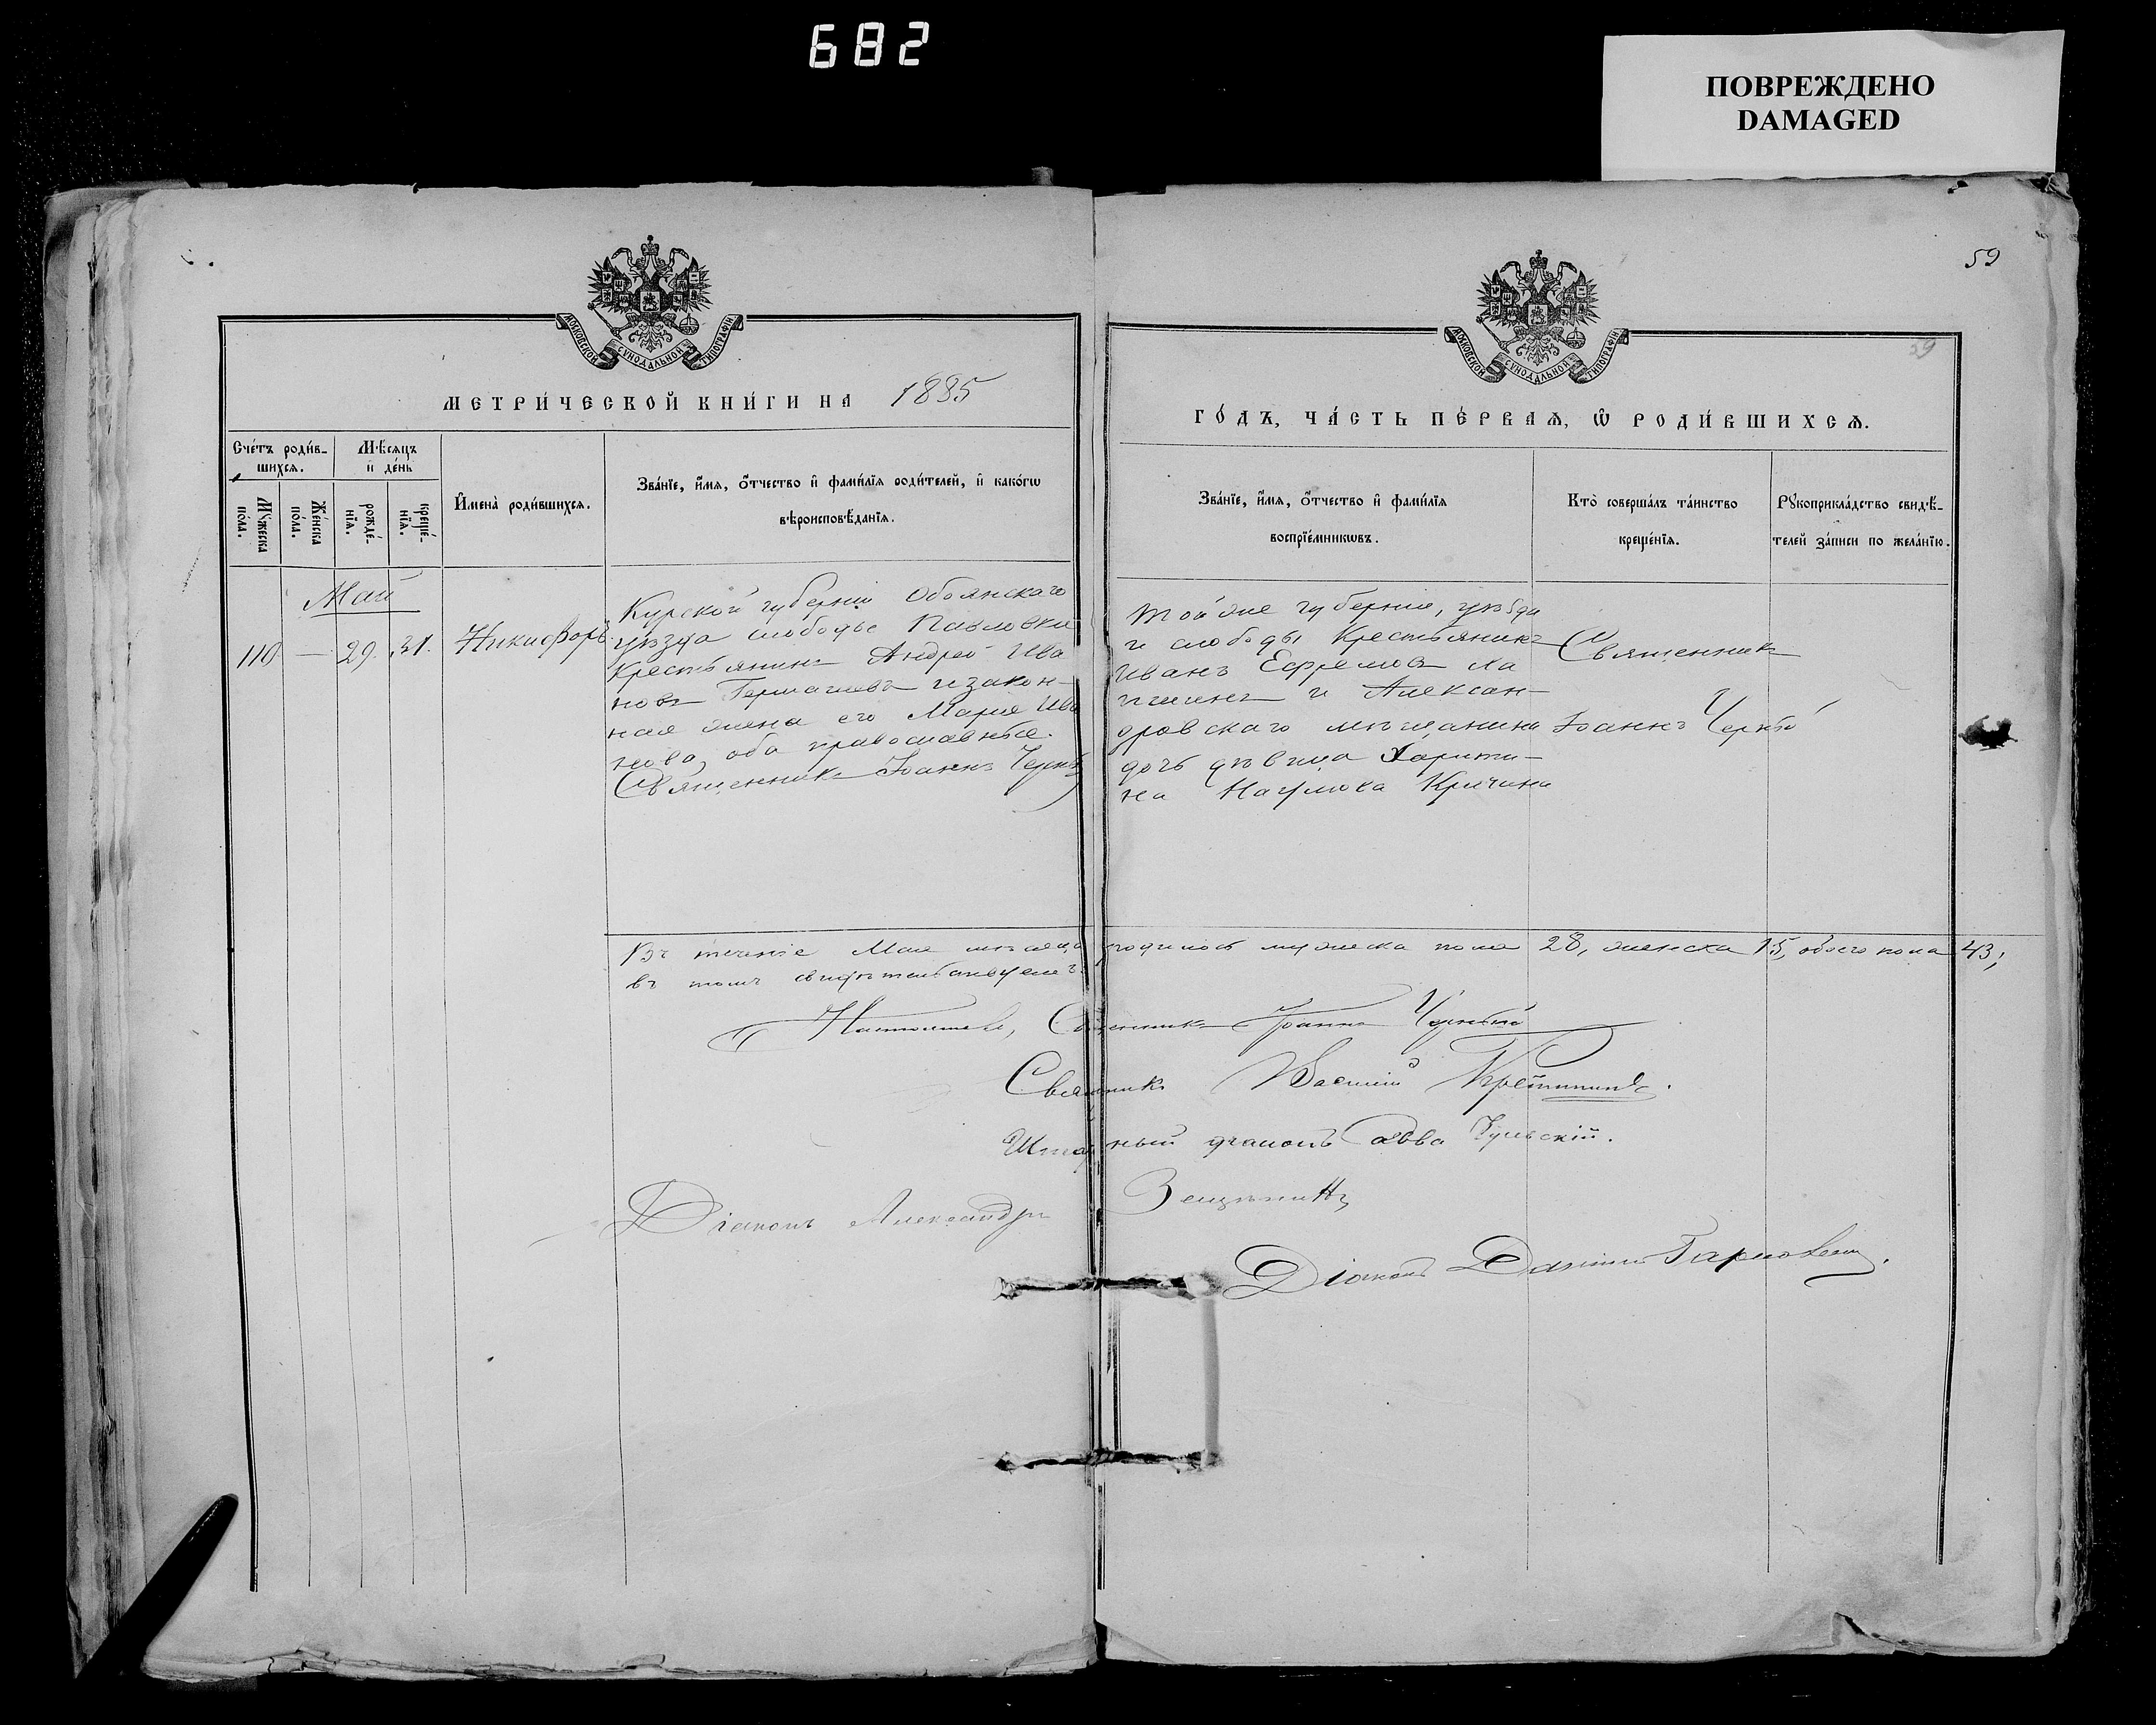 682
ПОВРЕЖДЕНО
DAMAGED
59
59
МОСКОВСКОЙ СѴНОДАЛЬНОЙ ТИПОГРАФІИ
МОСКОВСКОЙ СѴНОДАЛЬНОЙ ТИПОГРАФІИ
МЕТРИ́ЧЕСКОЙ КНИ́ГИ НА 1885
ГО́ДЪ, ЧА́СТЬ ПЕ́РВАѦ, Ѡ҆ РОДИ́ВШИХСѦ.
Сче́тъ роди́в-
шихсѧ.
Мꙋ́жеска по́ла.
Же́нска по́ла.
Мѣ́сѧцъ
и҆ де́нь
рожде́-
нїѧ.
креще́-
нїѧ.
И҆мена̀ роди́вшихсѧ.
Зва́нїе, и҆́мѧ, ѻ҆́тчество и҆ фами́лїѧ роди́телей, и҆ како́гѡ
вѣроисповѣ́данїѧ.
Зва́нїе, и҆́мѧ, ѻ҆́тчество и҆ фами́лїѧ
воспрїе́мникѡвъ.
Кто̀ соверша́лъ та́инство
креще́нїѧ.
Рꙋкоприкла́дство свидѣ́-
телей за́писи по жела́нїю.
Май
110 — 29. 31. Никифоръ
Курской губерніи Обоянскаго
уѣзда слободы Павловки
крестьянинъ Андрей Ива
новъ и закон-
ная жена его Марія Ива
нова, оба православные.
Священникъ Іоаннъ Черный
той же губерніи, уѣзда
и слободы крестьянинъ
Иванъ Ефремовъ Ха
и Алексан-
дровскаго мѣщанина
дочь дѣвица Харити-
на Наумова
Священникъ
Іоаннъ Черный
Въ теченіе Мая мѣсяца родилось мужеска пола 28, женска 15, обоего пола 43;
въ томъ свидѣтельствуемъ:
Настоятель, Священникъ Іоаннъ Черный
Священникъ Василій
Штатный діаконъ Савва
Діаконъ Александръ
Діаконъ